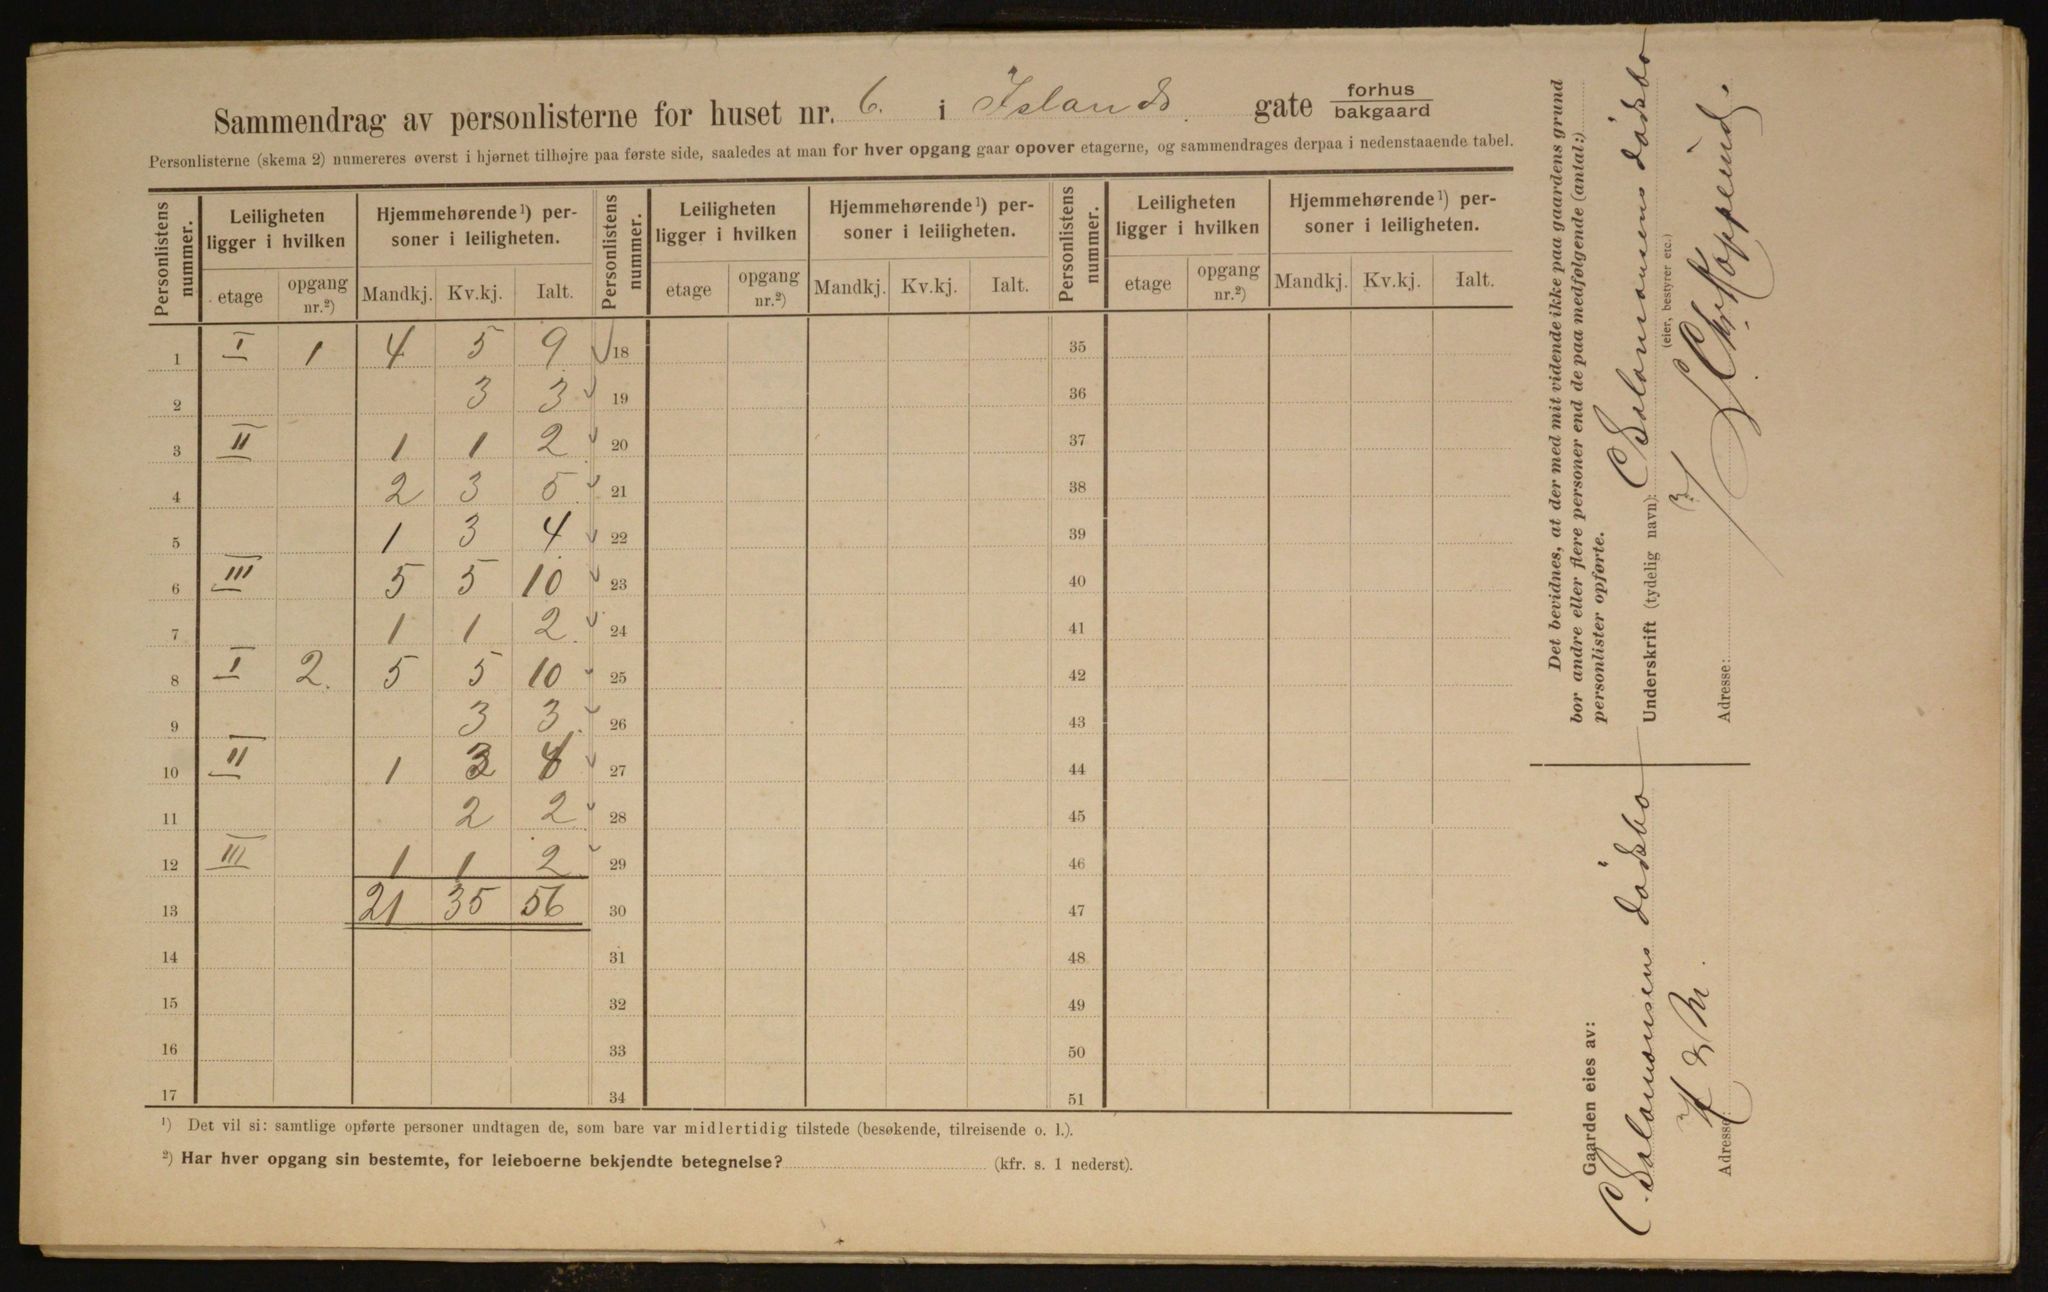 Sammendrag av personlisterne for huset nr. 6. i Islands gate forhus
bakgaard
Personlisterne (skema 2) numereres øverst i hjørnet tilhøjre paa første side, saaledes at man for hver opgang gaar opover etagerne, og sammendrages derpaa i nedenstaaende tabel.
Personlistens nummer. Leiligheten ligger i hvilken Hjemmehørende¹) per-soner i leiligheten. Personlistens nummer. Leiligheten ligger i hvilken Hjemmehørende¹) per-soner i leiligheten. Personlistens nummer. Leiligheten ligger i hvilken Hjemmehørende¹) per-soner i leiligheten.
etage opgang nr.²) Mandkj. Kv.kj. Ialt. etage opgang nr.²) Mandkj. Kv.kj. Ialt. etage opgang nr.²) Mandkj. Kv.kj. Ialt.
1 I 1 4 5 9 18 35
2 3 3 19 36
3 II 1 1 2 20 37
4 2 3 5 21 38
5 1 3 4 22 39
6 III 5 5 10 23 40
7 1 1 2 24 41
8 I 2. 5 5 10 25 42
9 3 3 26 43
10 II 1 3 4 27 44
11 2 2 28 45
12 III 1 1 2 29 46
13 21 35 56 30 47
14 31 48
15 32 49
16 33 50
17 34 51
¹) Det vil si: samtlige opførte personer undtagen de, som bare var midlertidig tilstede (besøkende, tilreisende o. l.).
²) Har hver opgang sin bestemte, for leieboerne bekjendte betegnelse? (kfr. s. 1 nederst).
Det bevidnes, at der med mit vidende ikke paa gaardens grund
bor andre eller flere personer end de paa medfølgende (antal:)
personlister opførte.
Underskrift (tydelig navn): C Salomonsens dødsbo
(eier, bestyrer etc.)
Adresse:
Gaarden eies av:
C Salomonsens dødsbo
Adresse: